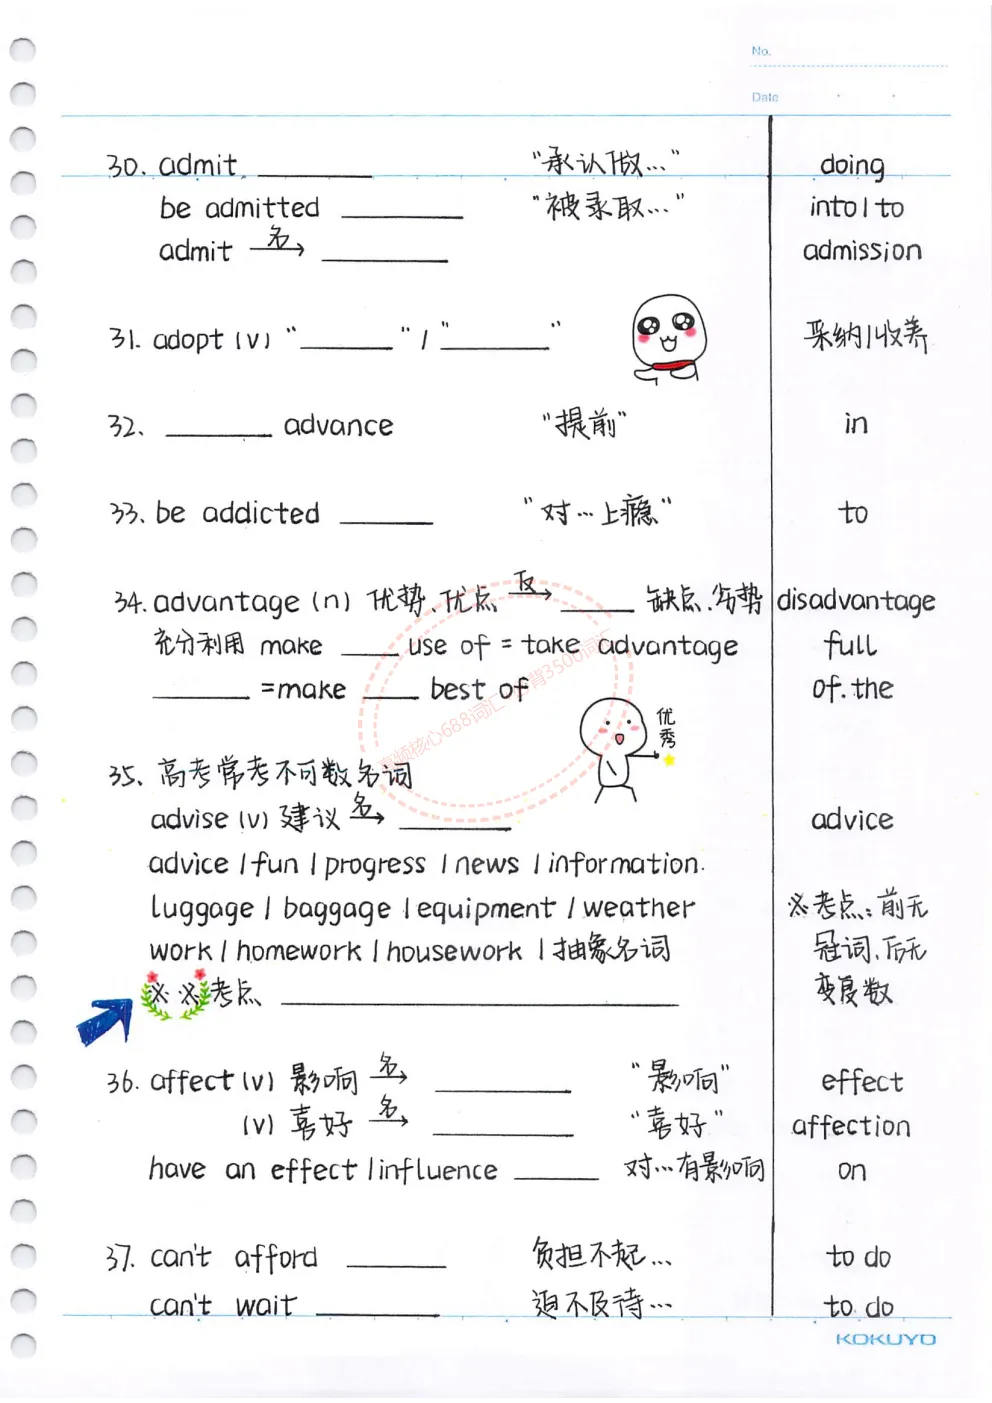 No.
Date
30. admit ________ "承认做…" doing
be admitted ________ "被录取…" into / to
admit 名→ ________ admission
31. adopt (v) "________" / "________" 采纳/收养
32. ________ advance "提前" in
33. be addicted ________ "对…上瘾" to
34. advantage (n) 优势、优点 反→ ________ 缺点、劣势 disadvantage
充分利用 make ____ use of = take advantage full
________ = make ____ best of of. the
优秀
35. 高考常考不可数名词
advise (v) 建议 名→ ________ advice
advice / fun / progress / news / information.
luggage / baggage / equipment / weather ※考点:前无
work / homework / housework / 抽象名词 冠词,后无
※※考点 ________ 变复数
36. affect (v) 影响 名→ ________ "影响" effect
(v) 喜好 名→ ________ "喜好" affection
have an effect / influence ________ 对…有影响 on
37. can't afford ________ 负担不起… to do
can't wait ________ 迫不及待… to do
KOKUYO
高频核心688词汇
背3500词汇